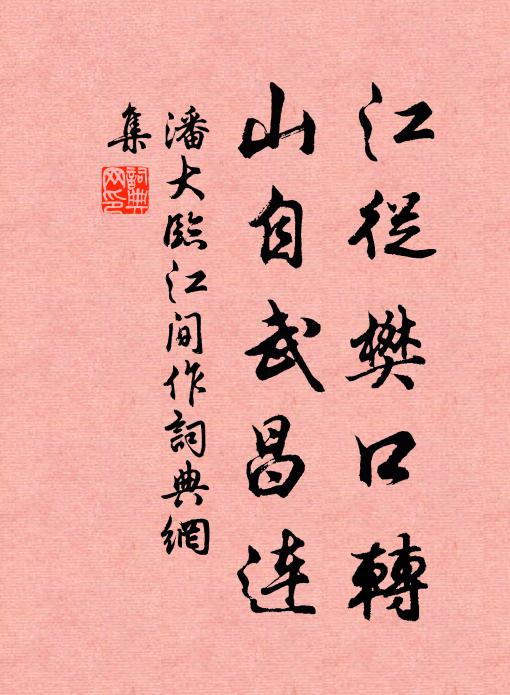 江從樊口轉
山自武昌连
潘大臨江间作詞典網
集
詞典
网印